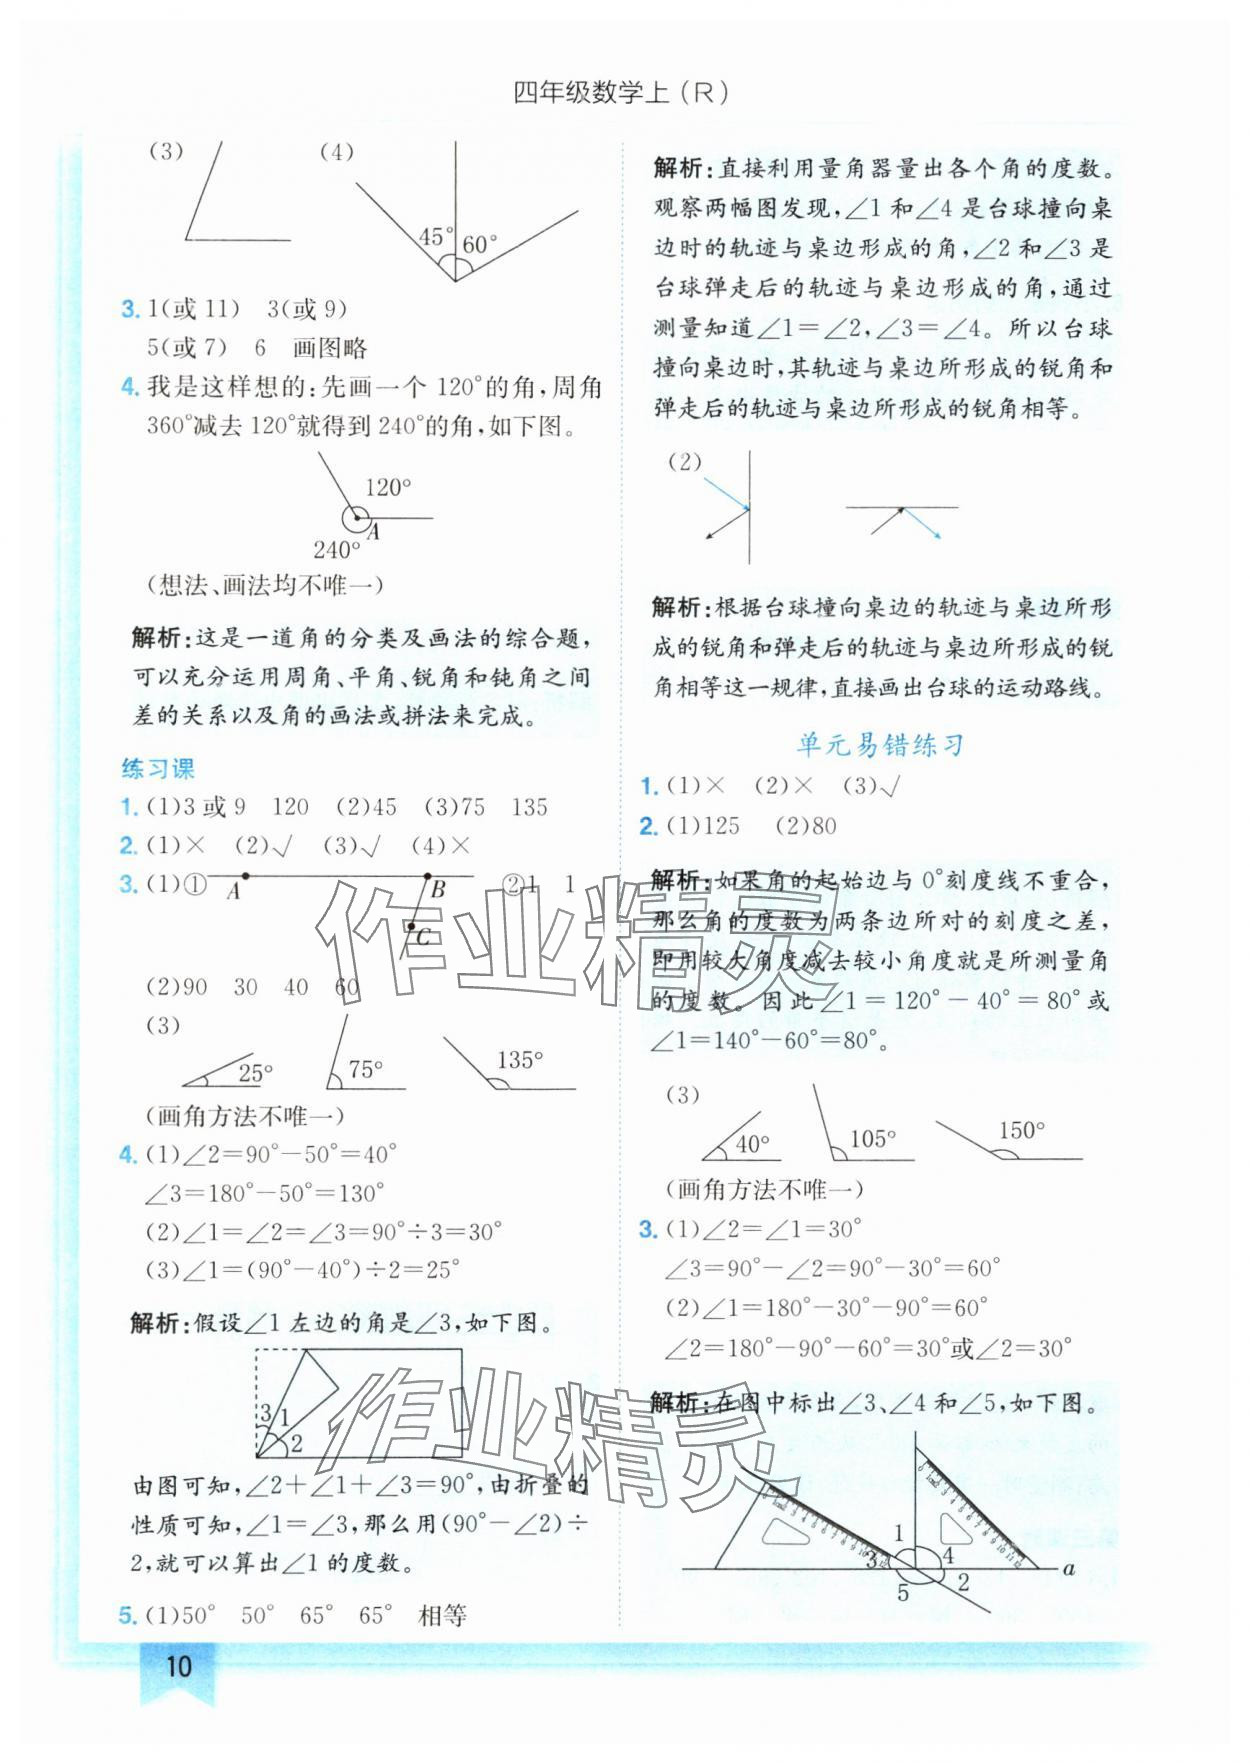 四年级数学上(R)
(3) (4)
45° 60°
3. 1(或11) 3(或9)
5(或7) 6 画图略
4. 我是这样想的:先画一个120°的角,周角
360°减去120°就得到240°的角,如下图。
120°
A
240°
(想法、画法均不唯一)
解析:这是一道角的分类及画法的综合题,
可以充分运用周角、平角、锐角和钝角之间
差的关系以及角的画法或拼法来完成。
练习课
1. (1)3或9 120 (2)45 (3)75 135
2. (1)× (2)√ (3)√ (4)×
3. (1)① A B ②1 1
C
(2)90 30 40 60
(3)
25° 75° 135°
(画角方法不唯一)
4. (1)∠2=90°-50°=40°
∠3=180°-50°=130°
(2)∠1=∠2=∠3=90°÷3=30°
(3)∠1=(90°-40°)÷2=25°
解析:假设∠1左边的角是∠3,如下图。
3 1
2
由图可知,∠2+∠1+∠3=90°,由折叠的
性质可知,∠1=∠3,那么用(90°-∠2)÷
2,就可以算出∠1的度数。
5. (1)50° 50° 65° 65° 相等
10
解析:直接利用量角器量出各个角的度数。
观察两幅图发现,∠1和∠4是台球撞向桌
边时的轨迹与桌边形成的角,∠2和∠3是
台球弹走后的轨迹与桌边形成的角,通过
测量知道∠1=∠2,∠3=∠4。所以台球
撞向桌边时,其轨迹与桌边所形成的锐角和
弹走后的轨迹与桌边所形成的锐角相等。
(2)
解析:根据台球撞向桌边的轨迹与桌边所形
成的锐角和弹走后的轨迹与桌边所形成的锐
角相等这一规律,直接画出台球的运动路线。
单元易错练习
1. (1)× (2)× (3)√
2. (1)125 (2)80
解析:如果角的起始边与0°刻度线不重合,
那么角的度数为两条边所对的刻度之差,
即用较大角度减去较小角度就是所测量角
的度数。因此∠1=120°-40°=80°或
∠1=140°-60°=80°。
(3)
40° 105° 150°
(画角方法不唯一)
3. (1)∠2=∠1=30°
∠3=90°-∠2=90°-30°=60°
(2)∠1=180°-30°-90°=60°
∠2=180°-90°-60°=30°或∠2=30°
解析:在图中标出∠3、∠4和∠5,如下图。
1
3 4
5 2 a
作业精灵
作业精灵